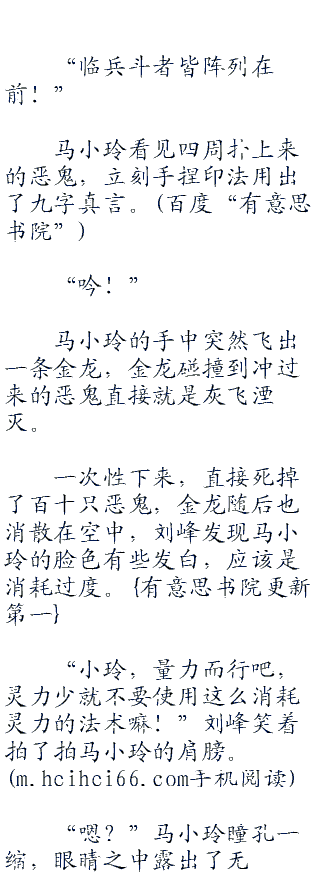 “临兵斗者皆阵列在
前！”
马小玲看见四周扑上来
的恶鬼，立刻手捏印法用出
了九字真言。(百度“有意思
书院”)
“吟！”
马小玲的手中突然飞出
一条金龙，金龙碰撞到冲过
来的恶鬼直接就是灰飞湮
灭。
一次性下来，直接死掉
了百十只恶鬼，金龙随后也
消散在空中，刘峰发现马小
玲的脸色有些发白，应该是
消耗过度。{有意思书院更新
第一}
“小玲，量力而行吧，
灵力少就不要使用这么消耗
灵力的法术嘛！”刘峰笑着
拍了拍马小玲的肩膀。
(m.hcihci66.com手机阅读)
“嗯？”马小玲瞳孔一
缩，眼睛之中露出了无